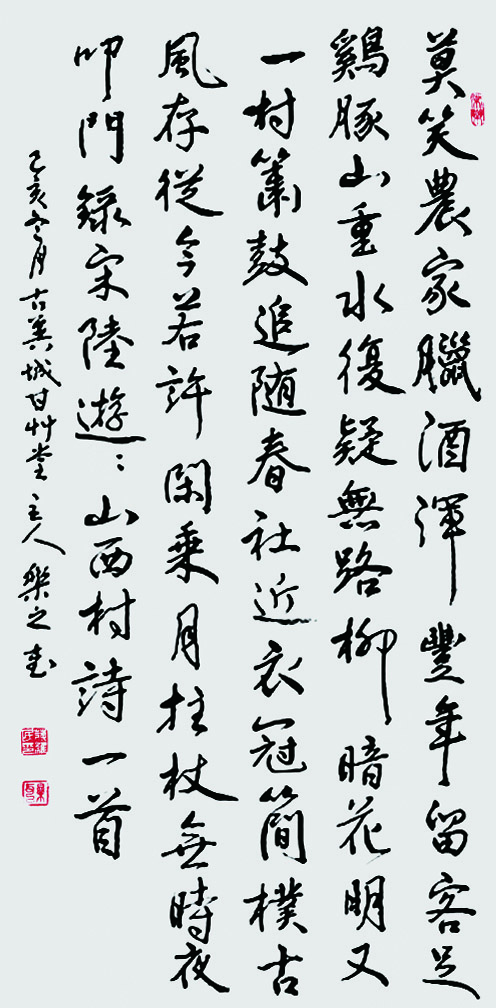 莫笑農家臘酒渾豐年留客足
鷄豚山重水復疑無路柳暗花明又
一村簫鼓追随春社近衣冠簡樸古
風存從今若許閑乗月拄杖無時夜
叩門錄宋陸遊遊山西村詩一首
己亥冬月古冀城甘艸堂主人樂之書